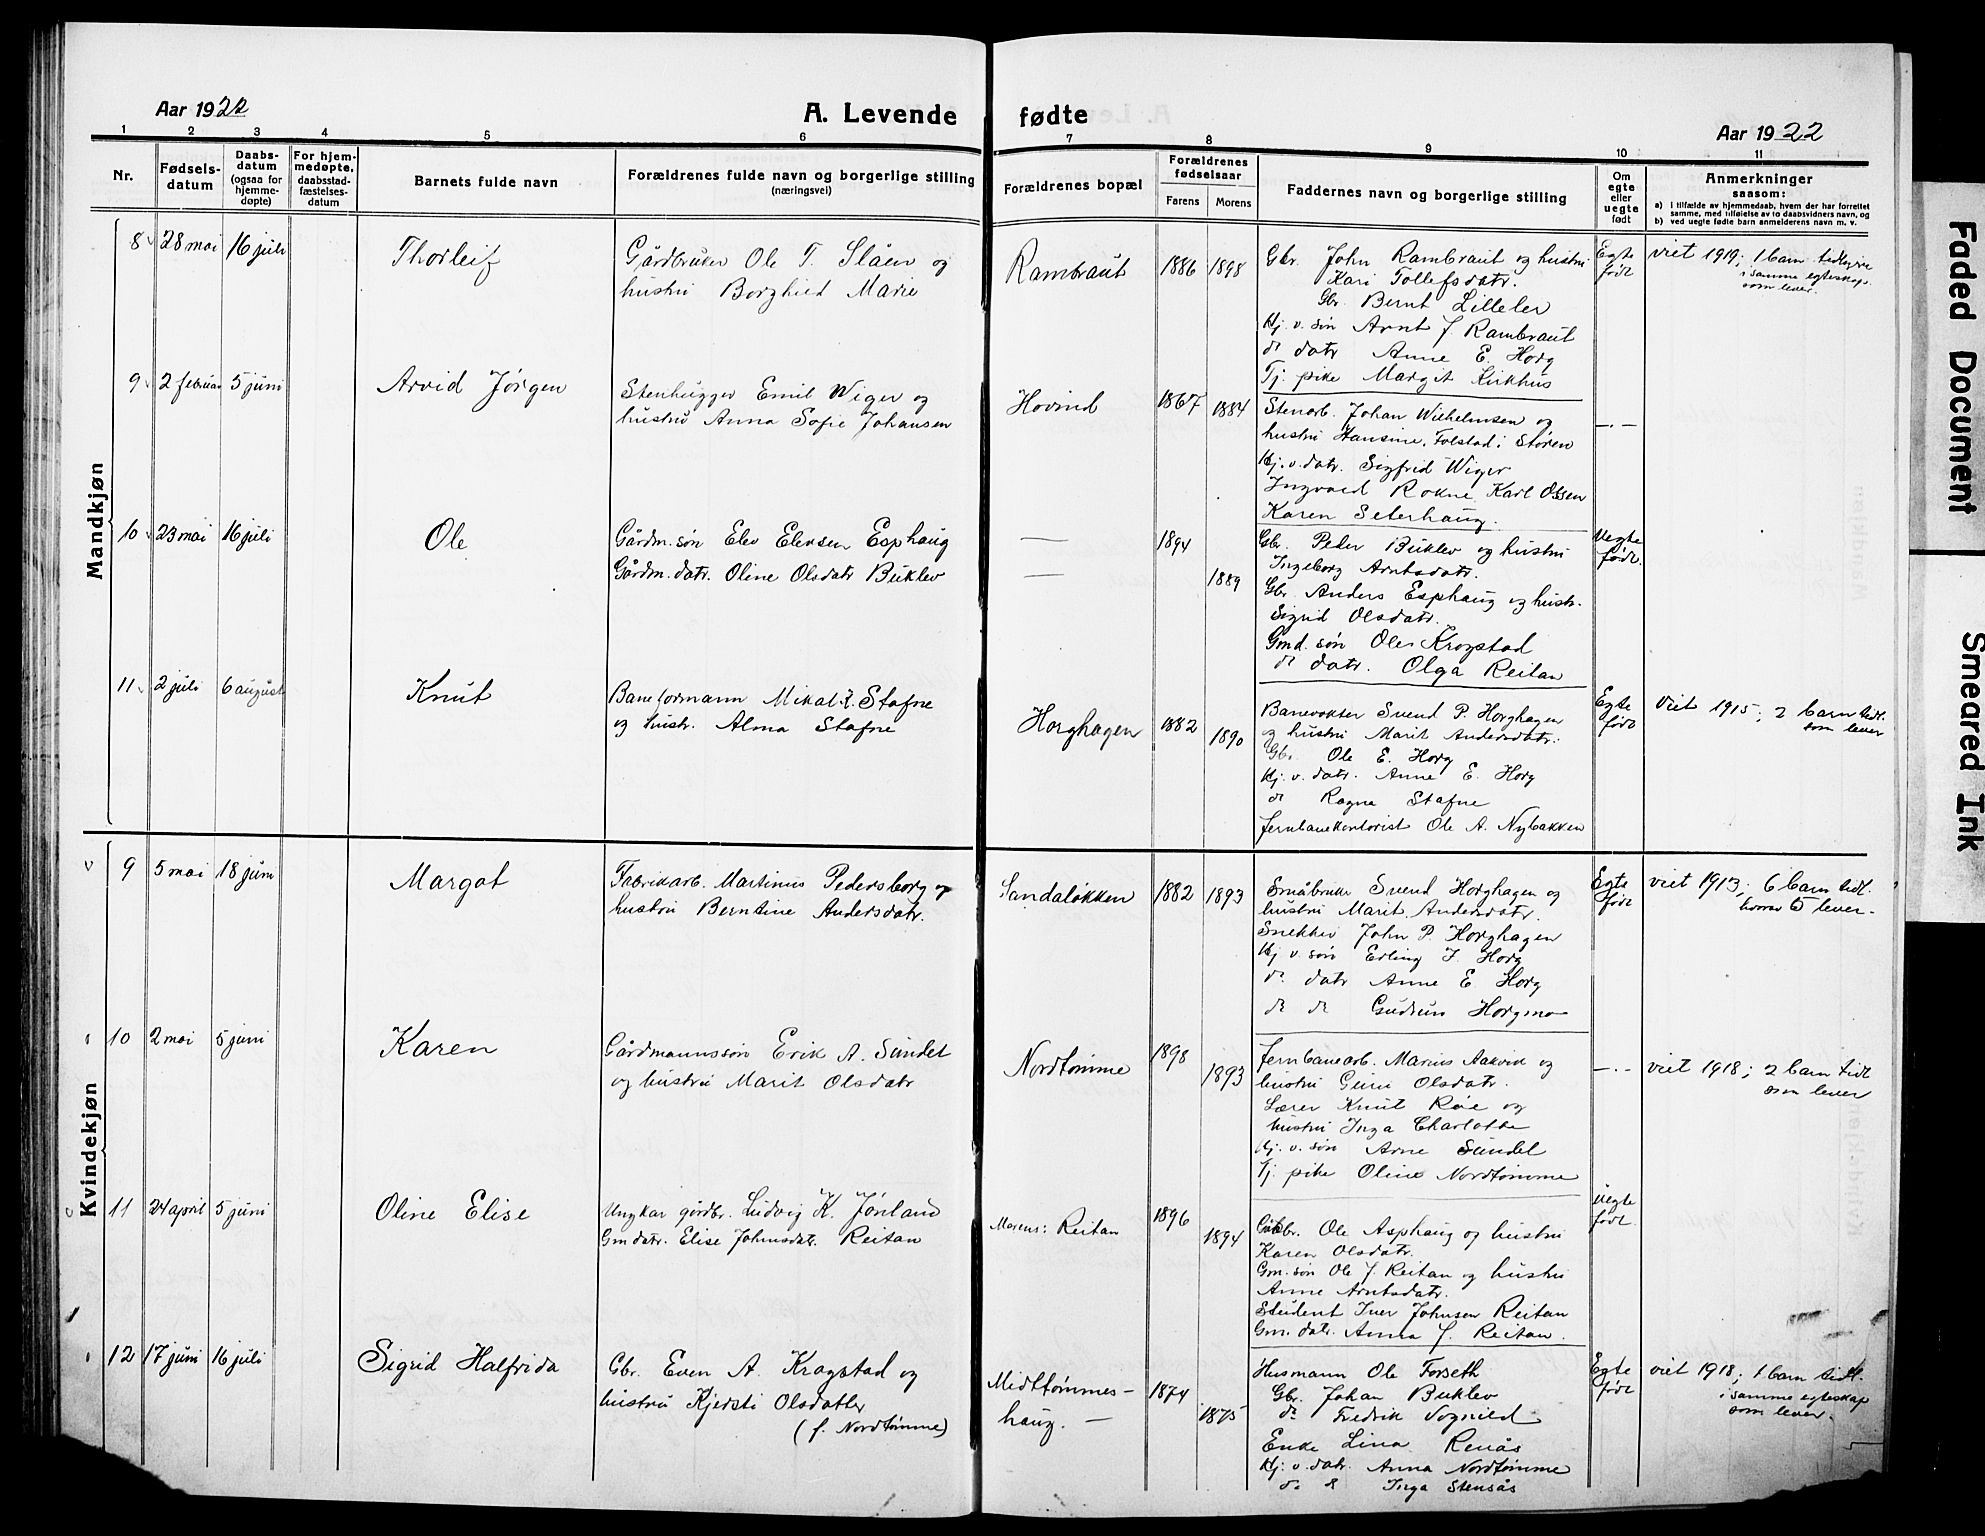 Aar 1922
A. Levende fødte
Aar 1922
1 2 3 4 5 6 7 8 9 10 11
Nr.
Fødsels-
datum
Daabs-
datum
(ogsaa for
hjemme-
døpte)
For hjem-
medøpte,
daabsstad-
fæstelses-
datum
Barnets fulde navn
Forældrenes fulde navn og borgerlige stilling
(næringsvei)
Forældrenes bopæl
Forældrenes
fødselsaar
Farens Morens
Faddernes navn og borgerlige stilling
Om
egte
eller
uegte
født
Anmerkninger
saasom:
a) i tilfælde av hjemmedaab, hvem der har forrettet
samme, med tilføielse av to daabsvidners navn, og
b) ved uegte fødte barn anmelderens navn m. v.
Mandkjøn
8 28 mai 16 juli Thorleif
Gårdbruker Ole T. Slåen og
hustru Borghild Marie
Rambraut 1886 1898
Gbr. John Rambraut og hustru
Kari Tollefsdatr.
Gbr. Bernt Lilleler
Hj. v. søn Arnt J. Rambraut
do datr Anne E. Horg
Tj. pike Margit Kirkhus
Egte
født
viet 1919; 1 barn tidligere
i samme egteskap
som lever.
9 2 februar 5 juni Arvid Jørgen
Stenhugger Emil Wiger og
hustru Anna Sofie Johansen
Hovind 1867 1884
Stenarb. Johan Wilhelmsen og
hustru Hansine, Folstad i Støren
Hj. v. datr. Sigfrid Wiger
Ingvald Rokne Karl Ossen
Karen Seterhaug.
—.—
10 23 mai 16 juli Ole
Gårdm.søn Elev Elevsen Esphaug
Gårdm.datr. Oline Olsdatr Buklev
—
—
1894
1889
Gbr. Peder Buklev og hustru
Ingeborg Arntsdatr.
Gbr. Anders Esphaug og hustr.
Sigrid Olsdatr.
Gmd. søn Ole Krogstad
do datr. Olga Reitan
Uegte
født.
11 2 juli 6 august Knut
Baneformann Mikal Stafne
og hustr. Alma Stafne
Horghagen 1882 1890
Banevokter Svend P. Horghagen
og hustru Marit Andersdatr.
Gbr. Ole E. Horg
Hj. v. datr. Anne E. Horg
do Ragna Stafne
Jernbanekontorist Ole A. Nybakken
Egte
født
Viet 1915; 2 barn tidl.
som lever
Kvindekjøn
9 5 mai 18 juni Margot
Fabrikarb. Martinus Pedersborg og
hustru Berntine Andersdatr.
Sandaløkken 1882 1893
Småbruker Svend Horghagen og
hustru Marit Andersdatr.
Snekker John P. Horghagen
Hj v. søn Erling J. Horg
do datr Anne E. Horg
do do Gudrun Horgmo
Egte
født
viet 1913; 6 barn tidl.
hvorav 5 lever.
10 2 mai 5 juni Karen
Gårdmannssøn Erik A. Sundet
og hustru Marit Olsdatr
Nordtømme 1898 1893
Jernbanearb. Marius Aakvik og
hustru Guru Olsdatr.
Lærer Knut Røe og
hustru Inga Charlotte
Hj. v. søn Arne Sundet
Tj. pike Oline Nordtømme
—.—
viet 1918; 2 barn tidl
som lever
11 24 april 5 juni Oline Elise
Ungkar gårdbr. Ludvig K. Jønland
Gmdatr. Elise Johnsdatr. Reitan
Morens: Reitan 1896 1894
Gbr. Ole Asphaug og hustru
Karen Olsdatr.
Gm. søn Ole J. Reitan og hustru
Anne Arntsdatr.
Student Iver Johnsen Reitan
Gm. datr. Anna J. Reitan.
Uegte
født
12 17 juni 16 juli Sigrid Halfrida
Gbr. Even A. Krogstad og
hustru Kjersti Olsdatter
(f. Nordtømme)
Midttømmes-
haug. —
1874
1875
Husmann Ole Forseth
Gbr. Johan Buklev
do Fredrik Vognild
Enke Lina Renås
Hj. v. datr. Anna Nordtømme
do do Inga Stensås
Egte
født
viet 1918; 1 barn tidl.
i samme egteskap
som lever.
Faded Document
Smeared Ink